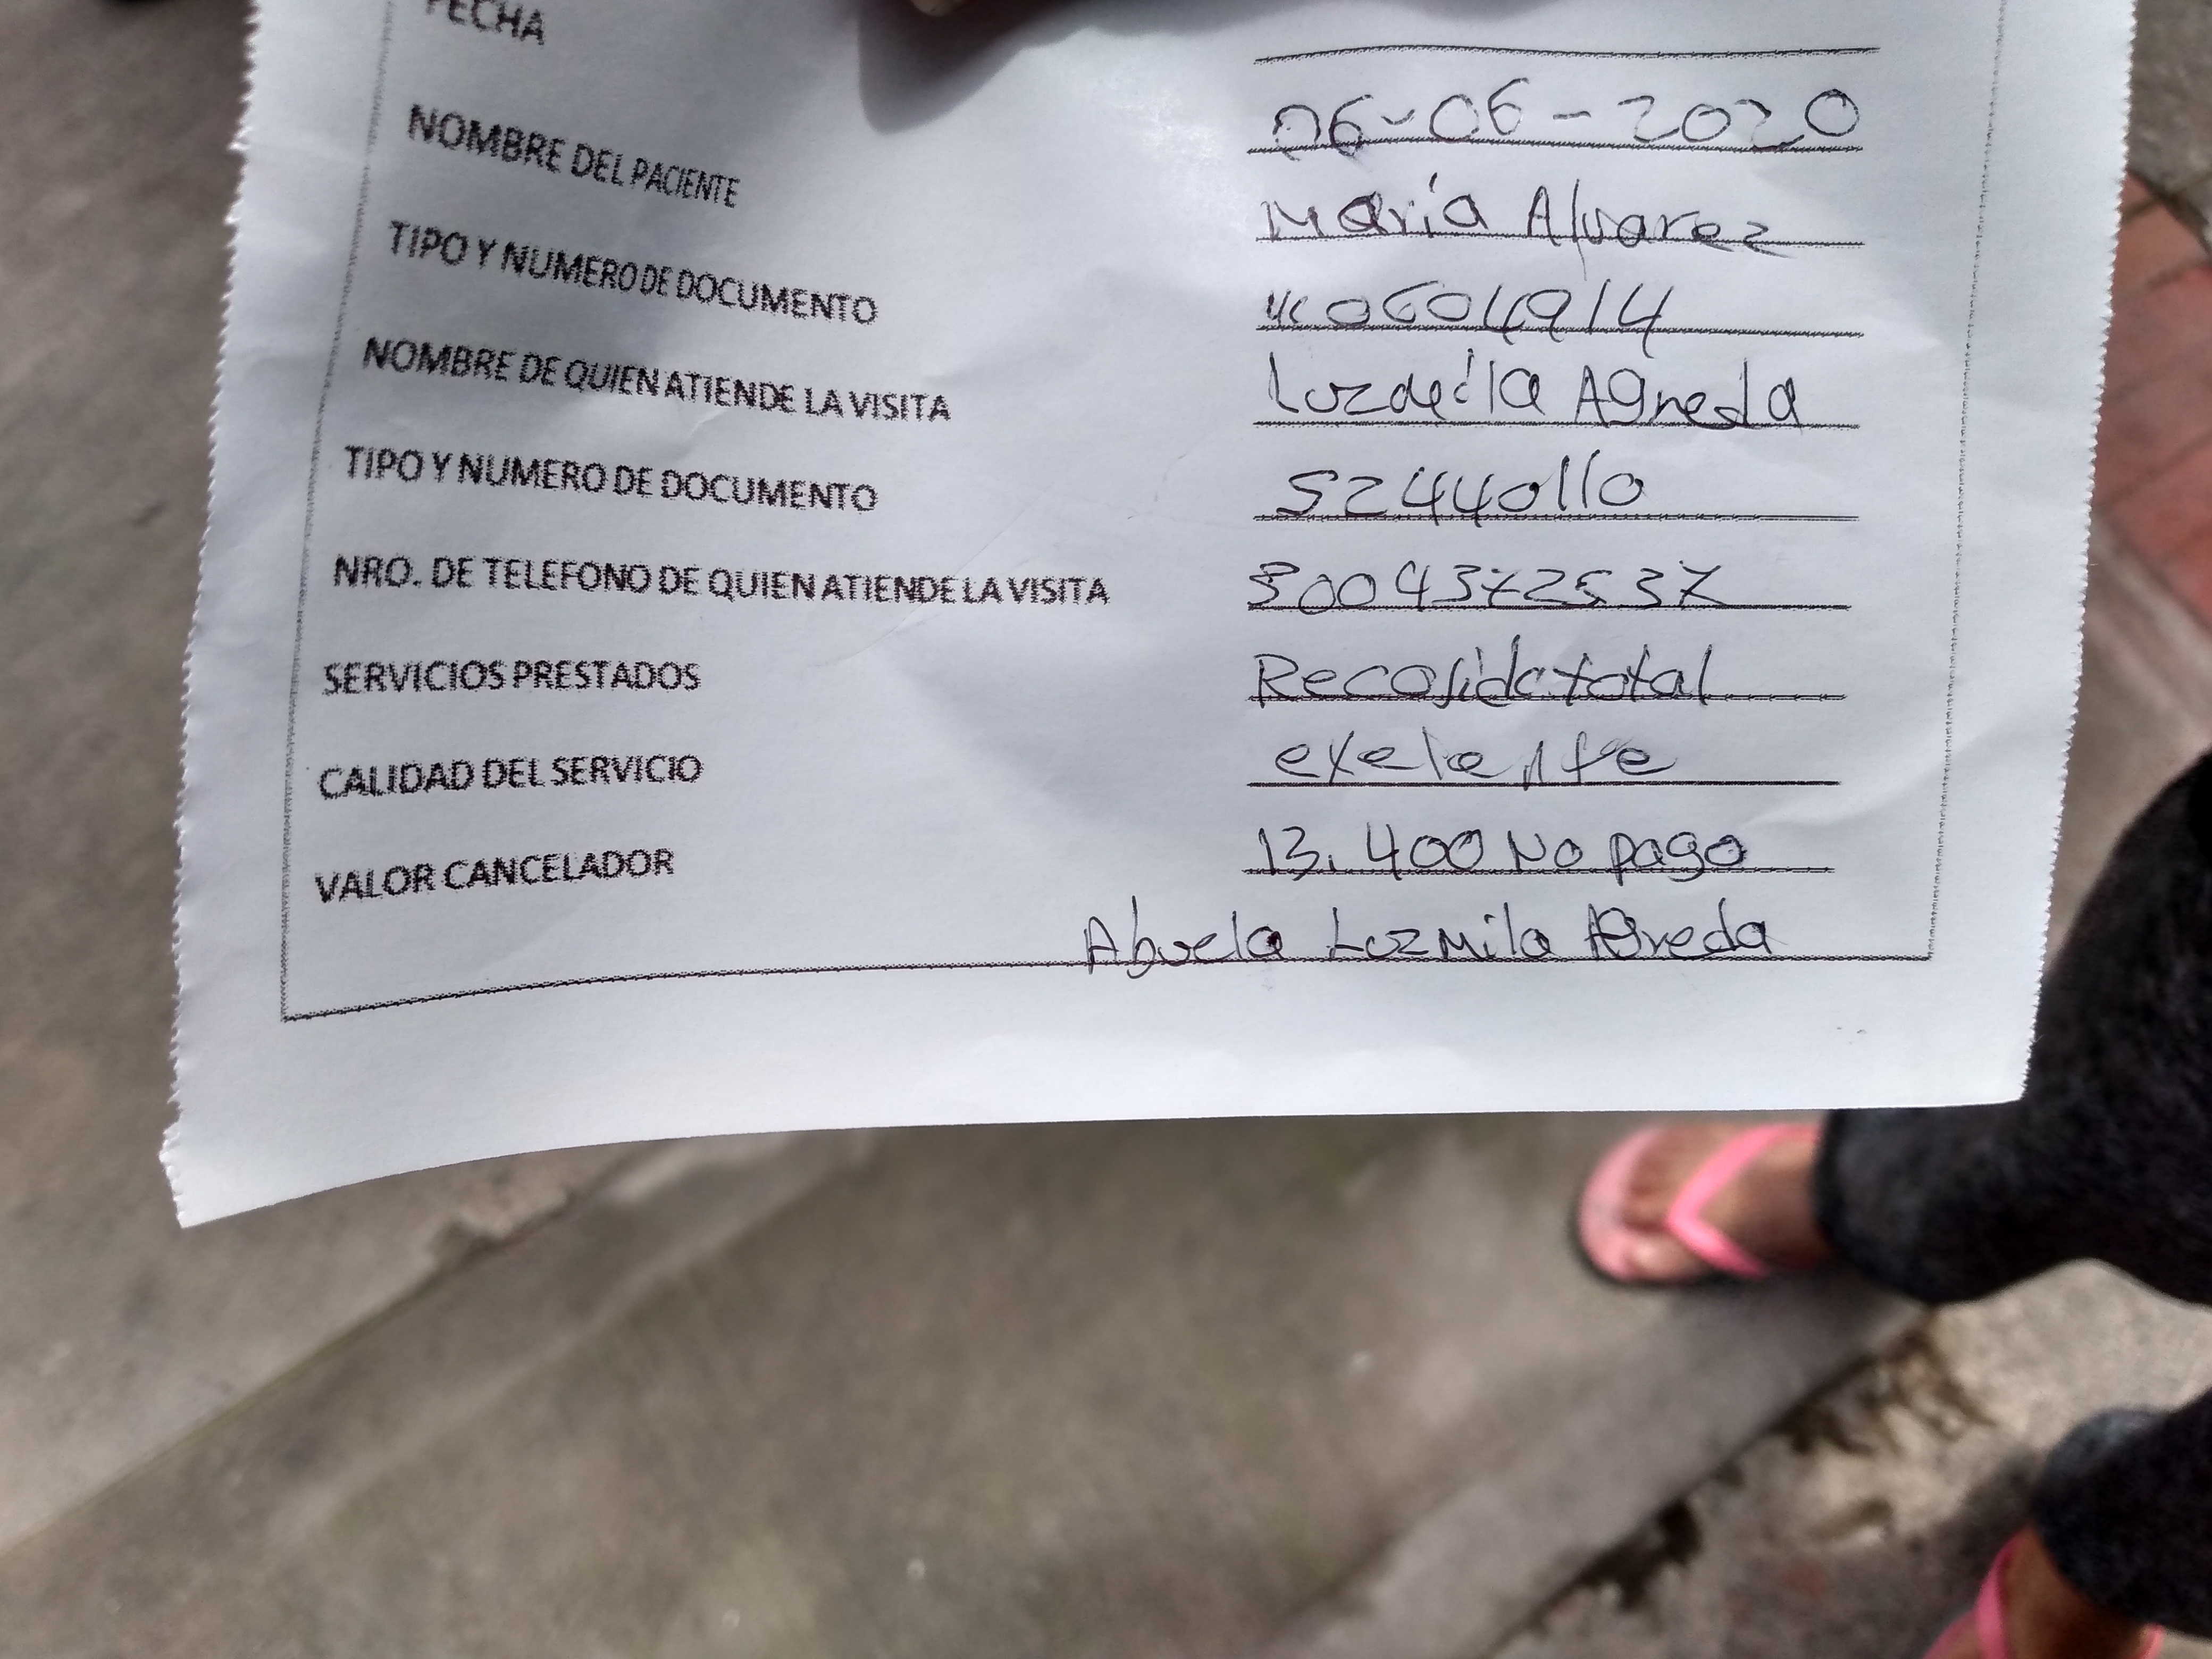 FECHA
06-06-2020
NOMBRE DEL PACIENTE
Maria Alvarez
TIPO Y NUMERO DE DOCUMENTO
NOMBRE DE QUIEN ATIENDE LA VISITA
TIPO Y NUMERO DE DOCUMENTO
52440110
NRO. DE TELEFONO DE QUIEN ATIENDE LA VISITA
3004372537
SERVICIOS PRESTADOS
Recogida total
CALIDAD DEL SERVICIO
exelente
VALOR CANCELADOR
13.400 No pago
Abuela Luzmila Agreda